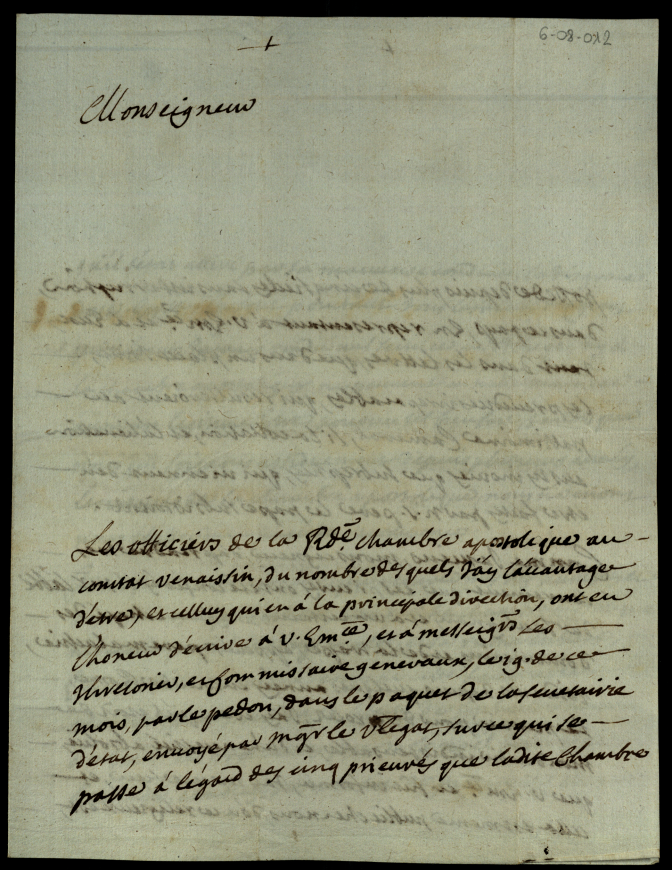 6-08-012
Monseigneur
Les officiers de la Rde. chambre apostolique au
comtat venaissin, du nombre desquels J'ay l'avantage
d'etre, et celluy qui en à la principale direction, ont eu
l'honeur d'ecrire à v. Emce, et à messeigrs les
thresorier, et Commissaire generaux, le 19. de ce
mois, par le pedon, dans le paquet de la secretairie
d'état, envoyé par mgr le vlegat, sur ce qui se
passe à légard des cinq prieurés que ladite Chambre